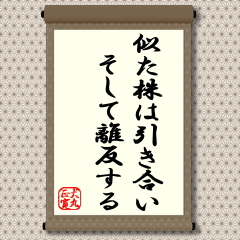 似た株は引き合い
そして離反する
大丸
正富